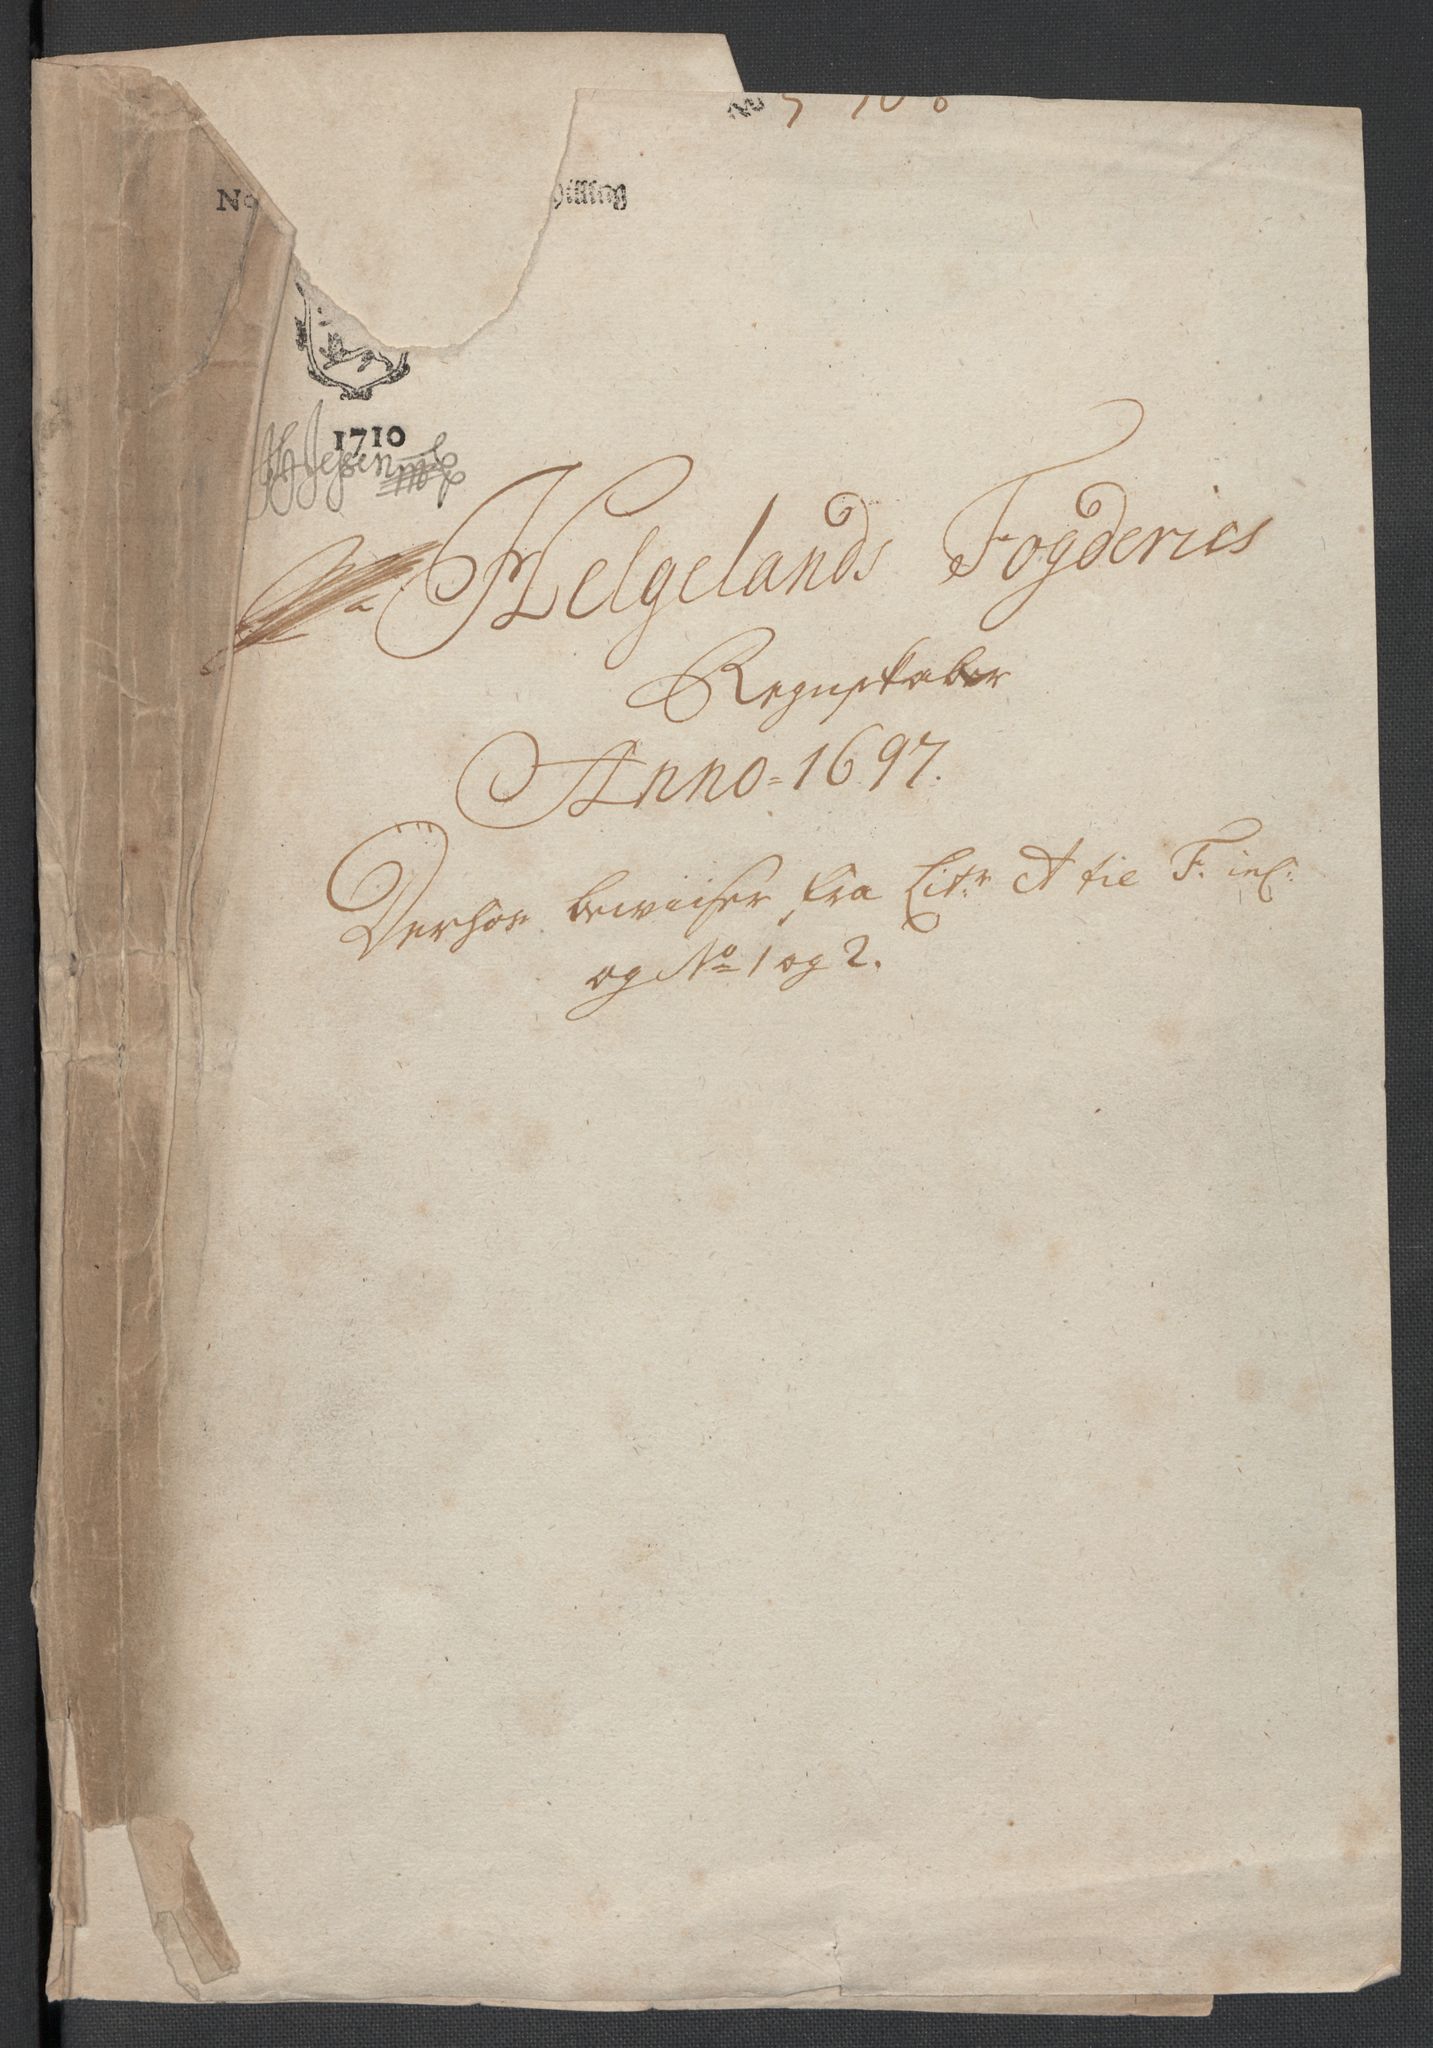 No
hilling
1710
HJessen
Helgelands Fogderies
Regnskaber
Anno = 1697.
Derhos beviiser fra Litr A til F. incl:
og No 1 og 2.